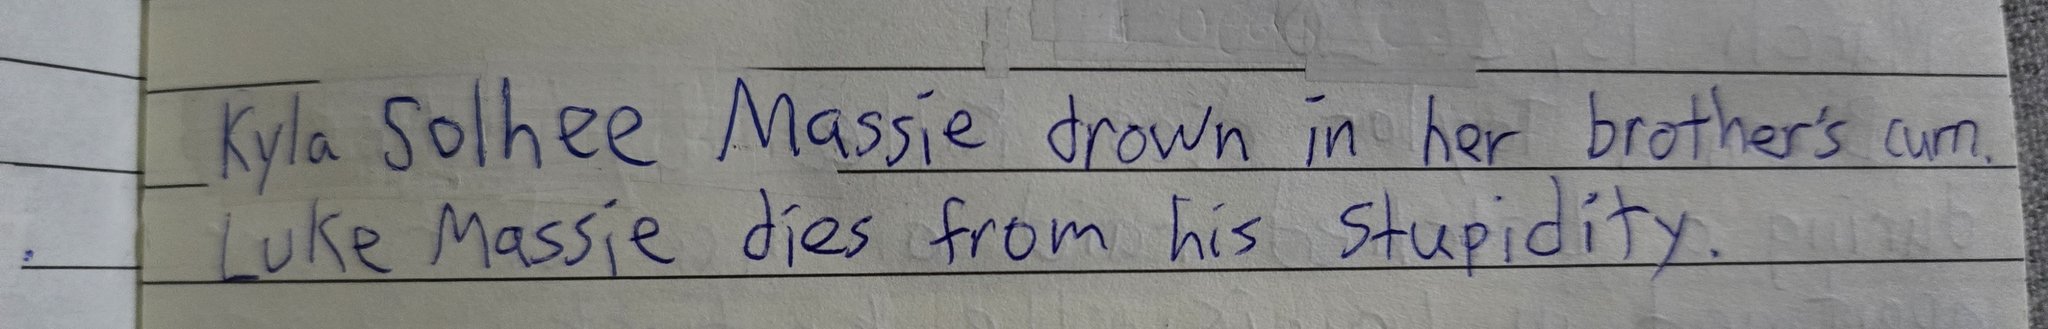 Kyla Solhee Massie drown in her brother's cum.
Luke Massie dies from his stupidity.